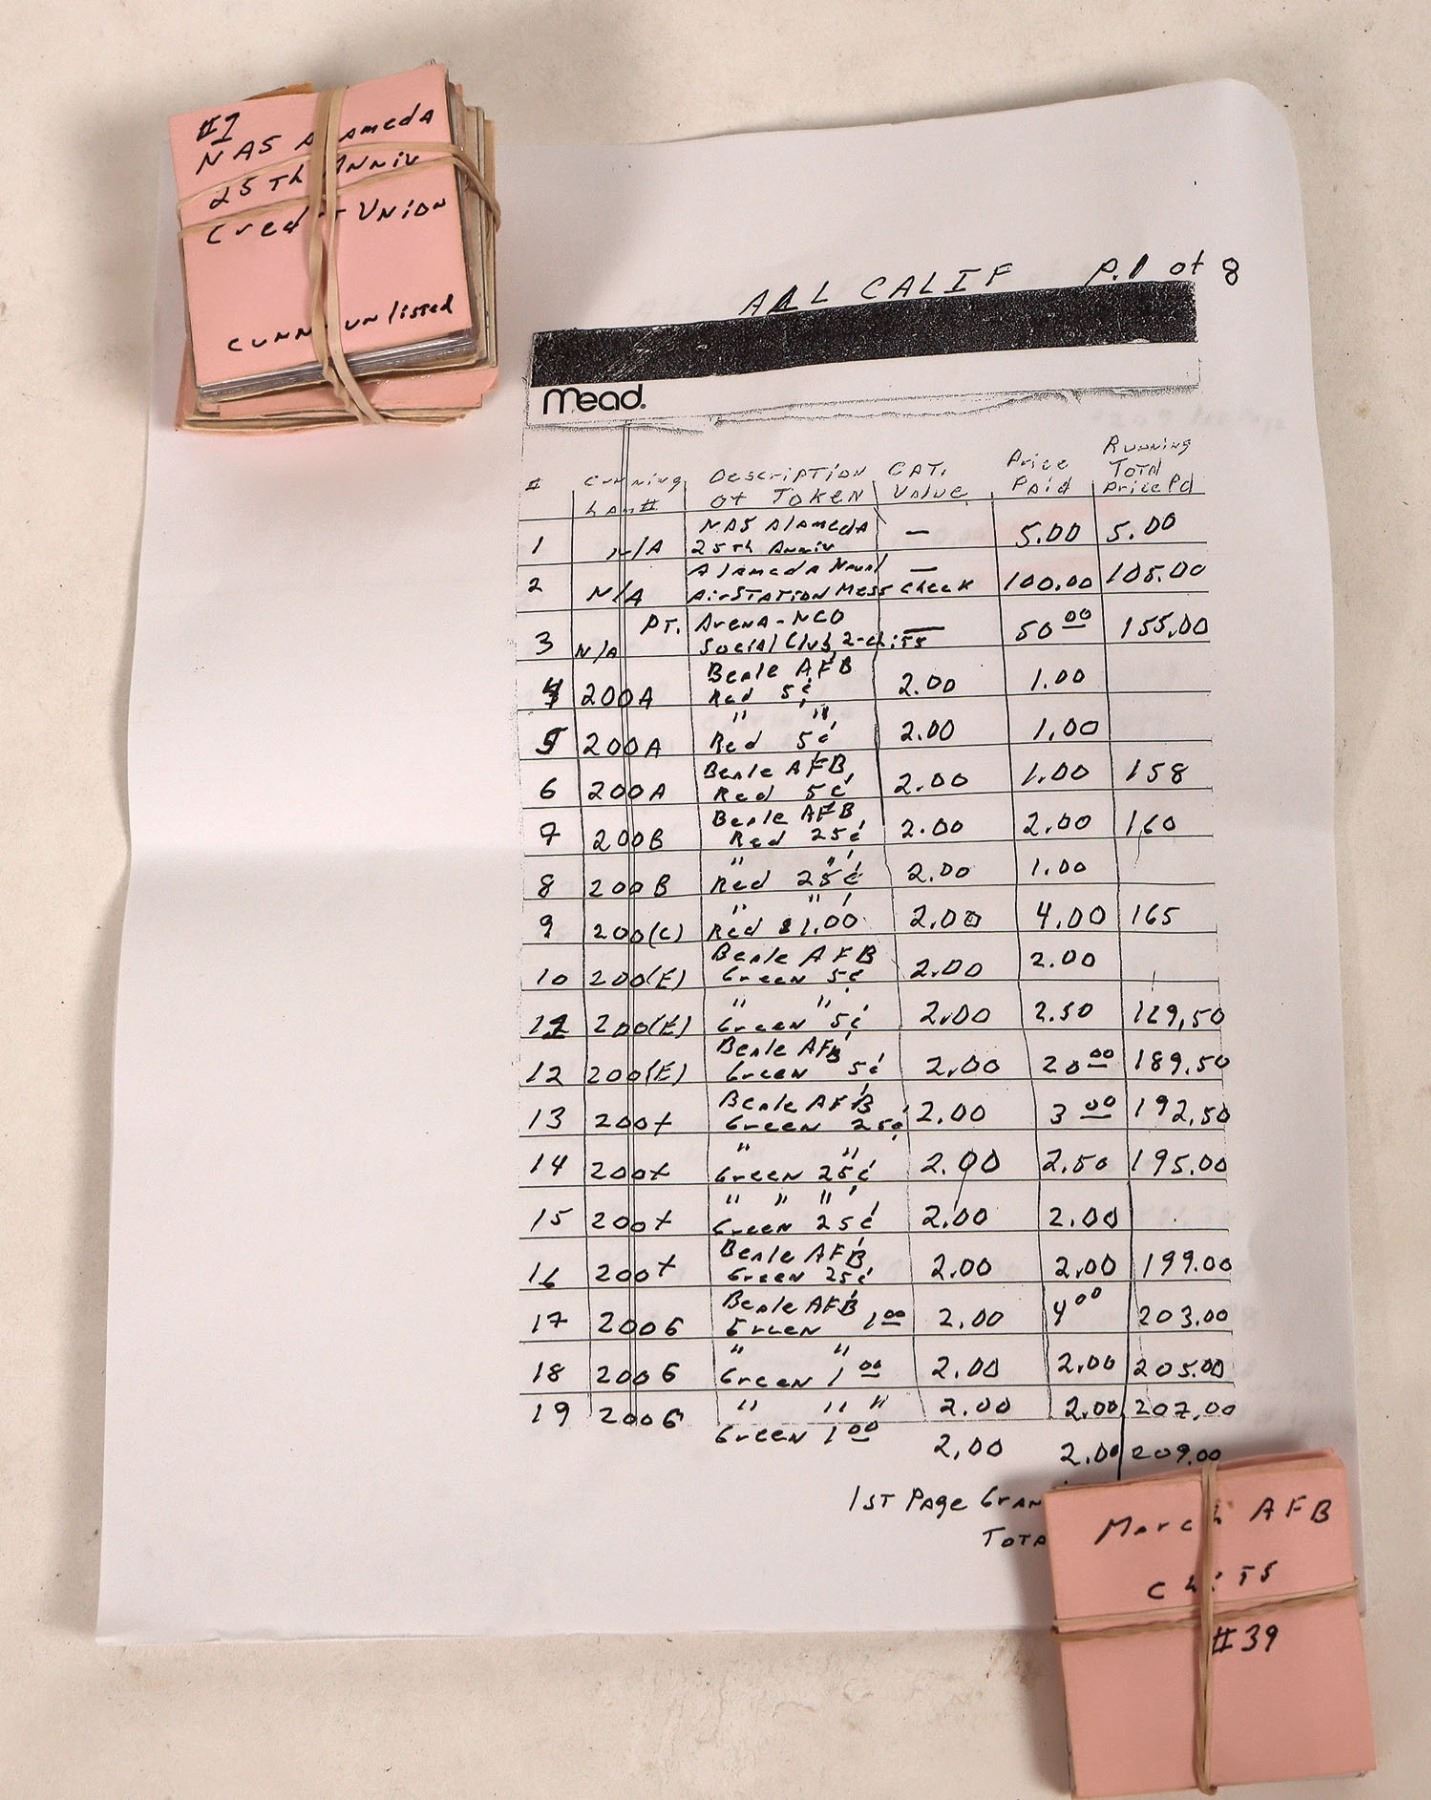 #1
NAS Alameda
25Th Anniv
Credit Union
CUNN unlisted
ALL CALIF P.1 of 8
Mead
# Cunning ham # Description of Token CAT. Value Price Paid Running Total Price Pd
1 N/A NAS Alameda 25th Anniv — 5.00 5.00
2 N/A Alameda Naval AirSTATION Mess Check — 100.00 105.00
3 N/A PT. Arena-NCO Social Club 2-chits — 50 00 155.00
4 200A Beale AFB Red 5¢ 2.00 1.00
5 200A " " Red 5¢ 2.00 1.00
6 200A Beale AFB Red 5¢ 2.00 1.00 158
7 200B Beale AFB Red 25¢ 2.00 2.00 160
8 200B " " Red 25¢ 2.00 1.00
9 200(C) " " Red $1.00 2.00 4.00 165
10 200(E) Beale AFB Green 5¢ 2.00 2.00
11 200(E) " " Green 5¢ 2.00 2.50 169.50
12 200(E) Beale AFB Green 5¢ 2.00 20 00 189.50
13 200f Beale AFB Green 25¢ 2.00 3 00 192.50
14 200f " " Green 25¢ 2.00 2.50 195.00
15 200f " " " Green 25¢ 2.00 2.00
16 200f Beale AFB Green 25¢ 2.00 2.00 199.00
17 200G Beale AFB Green 1 00 2.00 4 00 203.00
18 200G " " Green 1 00 2.00 2.00 205.00
19 200G " " " 2.00 2.00 207.00
Green 1 00 2.00 2.00 209.00
1ST Page Gran
Tota
March AFB
Chits
#39